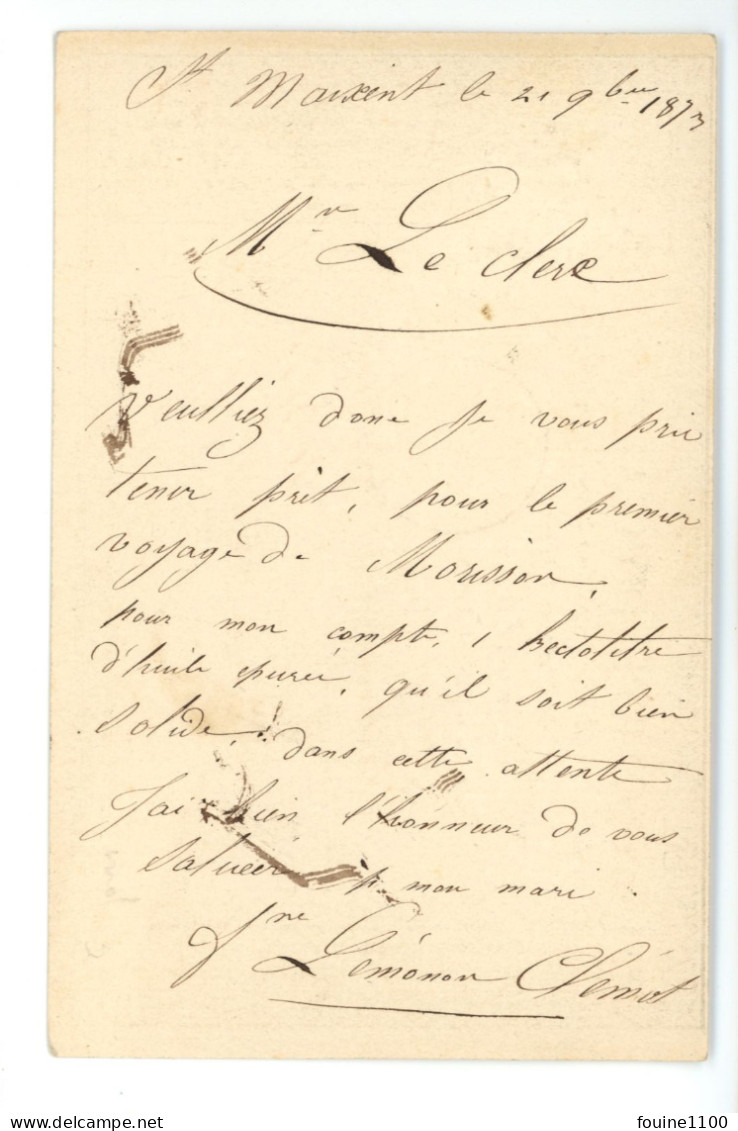 St Maixent le 21 9bre 1873
Mr Le clerc
Veulliez donc je vous prie
tenir prêt, pour le premier
voyage de Morisson,
pour mon compte, 1 hectolitre
d'huile epurée, qu'il soit bien
solide, dans cette attente
J'ai bien l'honneur de vous
saluer p mon mari
fne Lémonon Clémot
fouine1100